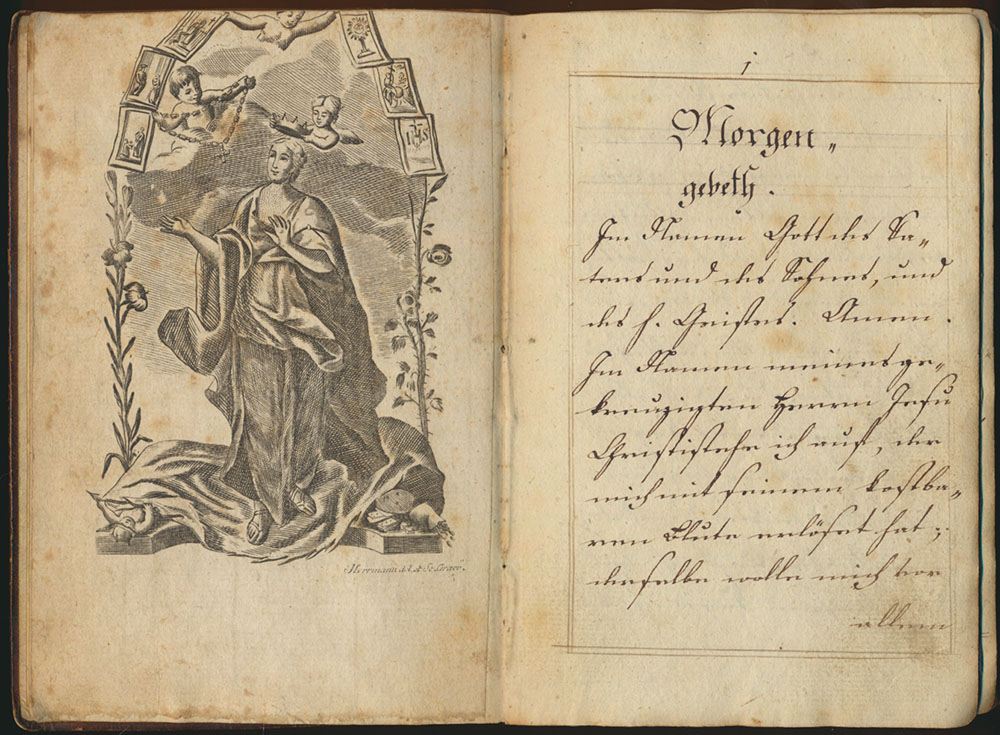 IHS
Herrmann del. et Sc. Graec.
1
Morgen„
gebeth.
Im Namen Gott des Va„
ters und des Sohnes, und
des h. Geistes. Amen.
Im Namen meines ge„
kreuzigten Herrn Jesu
Christi stehe ich auf, der
mich mit seinem kostba„
ren Blute erlöset hat;
derselbe wolle mich vor
allem